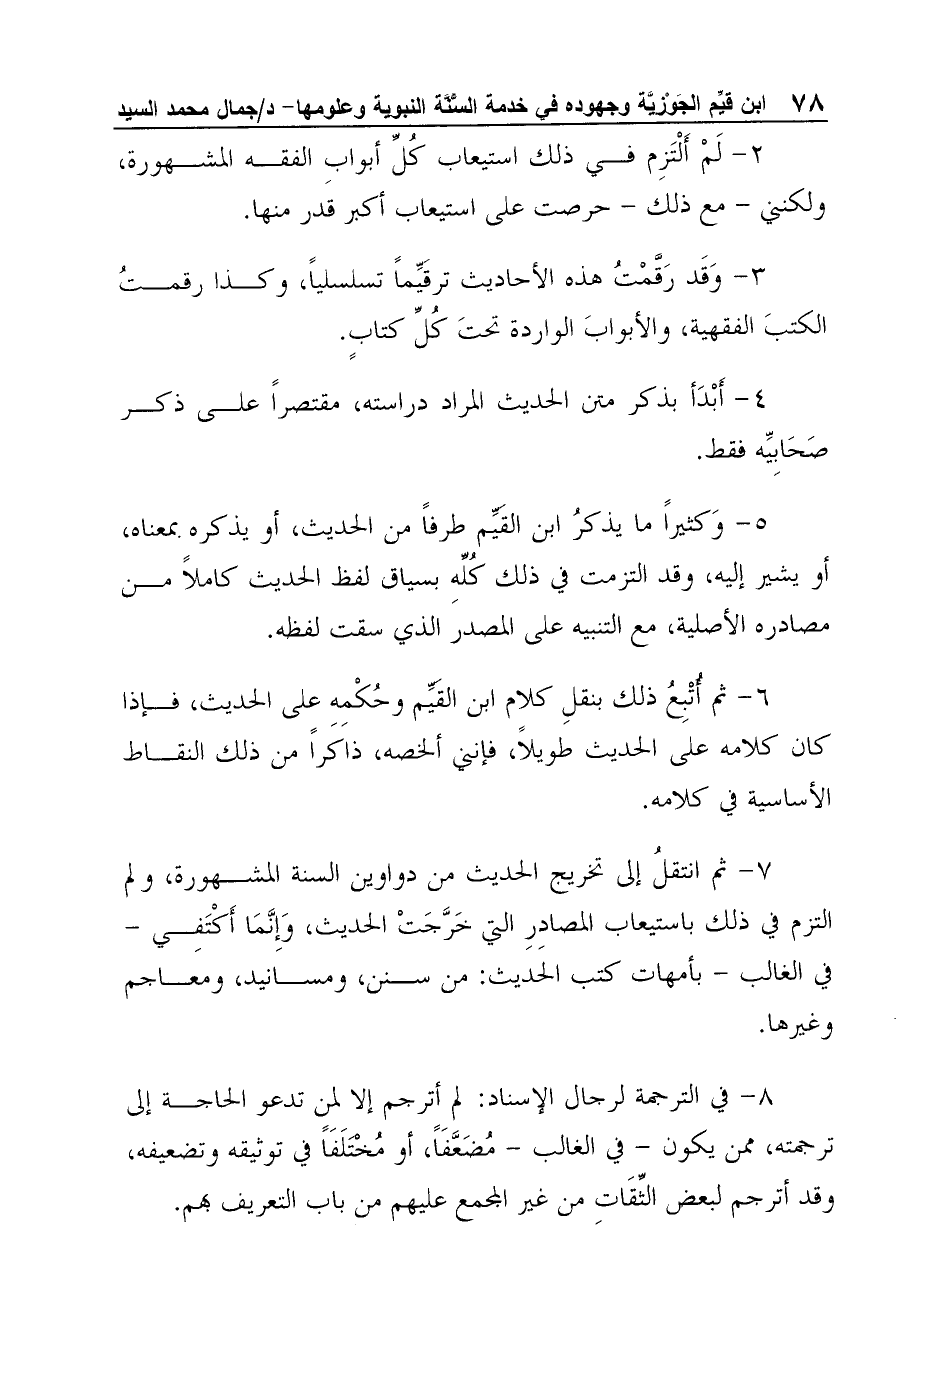 ٧٨ ابن قيِّم الجَوْزيَّة وجهوده في خدمة السُّنَّة النبوية وعلومها- د/جمال محمد السيد
٢- لَمْ أَلْتَزِم فـي ذلك استيعاب كُلِّ أبواب الفقـه المشـهورة،
ولكنني - مع ذلك - حرصت على استيعاب أكبر قدر منها.
٣- وَقَد رَقَّمْتُ هذه الأحاديث ترقَيِّماً تسلسلياً، وكـذا رقمـتُ
الكتبَ الفقهية، والأبوابَ الواردة تحتَ كُلِّ كتابٍ.
٤- أَبْدَأ بذكر متن الحديث المراد دراسته، مقتصراً علـى ذكـر
صَحَابِيِّه فقط.
٥- وَكثيراً ما يذكرُ ابن القَيِّم طرفاً من الحديث، أو يذكره بمعناه،
أو يشير إليه، وقد التزمت في ذلك كُلِّهِ بسياق لفظ الحديث كاملاً مـن
مصادره الأصلية، مع التنبيه على المصدر الذي سقت لفظه.
٦- ثم أُتْبِعُ ذلك بنقلِ كلام ابن القَيِّم وحُكْمِهِ على الحديث، فـإذا
كان كلامه على الحديث طويلاً، فإنني ألخصه، ذاكراً من ذلك النقـاط
الأساسية في كلامه.
٧- ثم انتقلُ إلى تخريج الحديث من دواوين السنة المشـهورة، ولم
التزم في ذلك باستيعاب المصادِرِ التي خَرَّجَتْ الحديث، وَإِنَّمَا أَكْتَفِـي -
في الغالب - بأمهات كتب الحديث: من سـنن، ومسـانيد، ومعـاجم
وغيرها.
٨- في الترجمة لرجال الإسناد: لم أترجم إلا لمن تدعو الحاجـة إلى
ترجمته، ممن يكون - في الغالب - مُضَعَّفَاً، أو مُخْتَلَفَاً في توثيقه وتضعيفه،
وقد أترجم لبعض الثِّقَاتِ من غير المجمع عليهم من باب التعريف بهم.